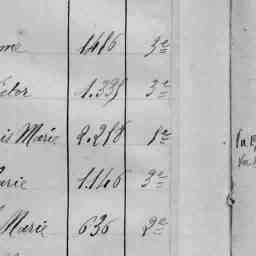 me 1416 3e
ctor 1.335 3e
is Marie 2.218 1e
arie 1.146 3e
Marie 636 2e